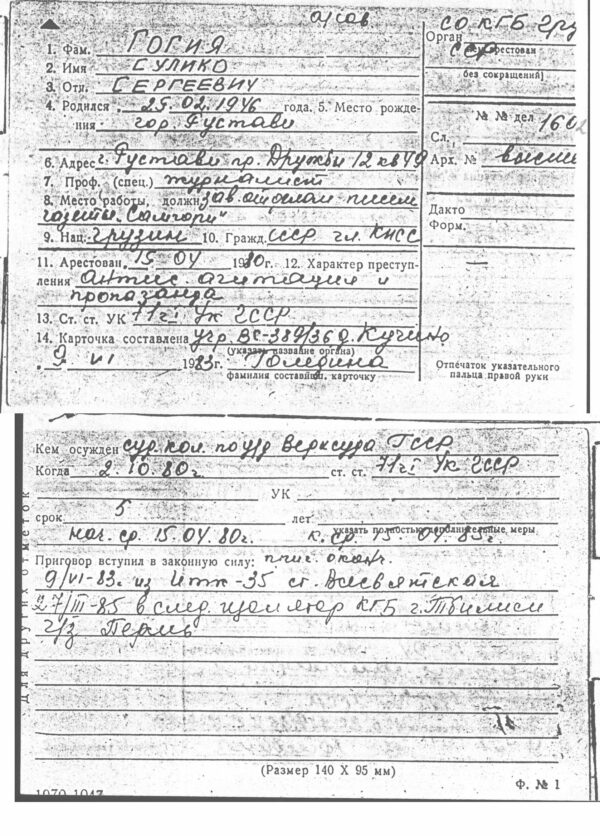 СО КГБ
Орган
1. Фам. ГОГИЯ
2. Имя СУЛИКО
без сокращений)
3. Отч. СЕРГЕЕВИЧ
4. Родился 25.02.1946 года. 5. Место рожде-
ния гор. Рустави
№ № дел
Сл.
6. Адрес г. Рустави пр. Дружбы 12 кв 49
Арх. №
7. Проф. (спец.) журналист
8. Место работы, должн. зав. отделом писем
газеты
Дакто
Форм.
9. Нац. грузин 10. Гражд. СССР чл. КПСС
11. Арестован 15 04 1980г. 12. Характер преступ-
ления антис. агитация и
пропаганда
13. Ст. ст. УК 71 ч I УК ГССР
14. Карточка составлена учр. ВС-389/36 д. Кучино
(указать название органа)
9. VI 1983г.
фамилия составив. карточку
Отпечаток указательного
пальца правой руки
Кем осужден суд. кол. по у/д Верхсуда ГССР
Когда 2.10.80г. ст. ст. 71 ч I УК ГССР
УК
срок 5 лет
указать полностью дополнительные меры
нач. ср. 15.04.80г. к. ср. 15. 04. 85г.
Приговор вступил в законную силу:
9/VI-83г. из ИТК-35 ст. Всесвятская
27/III-85 в след. изолятор КГБ г. Тбилиси
ч/з Пермь
Для других отметок
(Размер 140 X 95 мм)
Ф. № 1